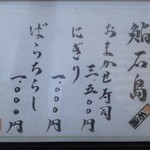 鮨石島
おまかせ寿司
三、五〇〇円
にぎり
一、〇〇〇円
ばらちらし
一、〇〇〇円